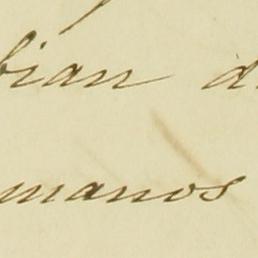 bian d
manos